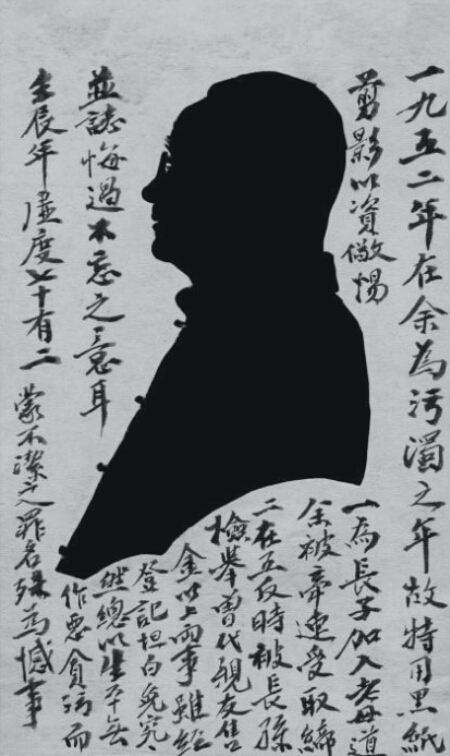 一九五二年在余為污濁之年故特用黑紙
剪影以資儆惕
一為長子加入老母道
余被牽連受取締
二在五反時被長孫
檢舉曾代親友售
金以上兩事雖經
登記坦白免究
然總以生平無
作惡貪污而
蒙不潔之罪名殊為憾事
並誌悔過不忘之意耳
壬辰年虛度七十有二